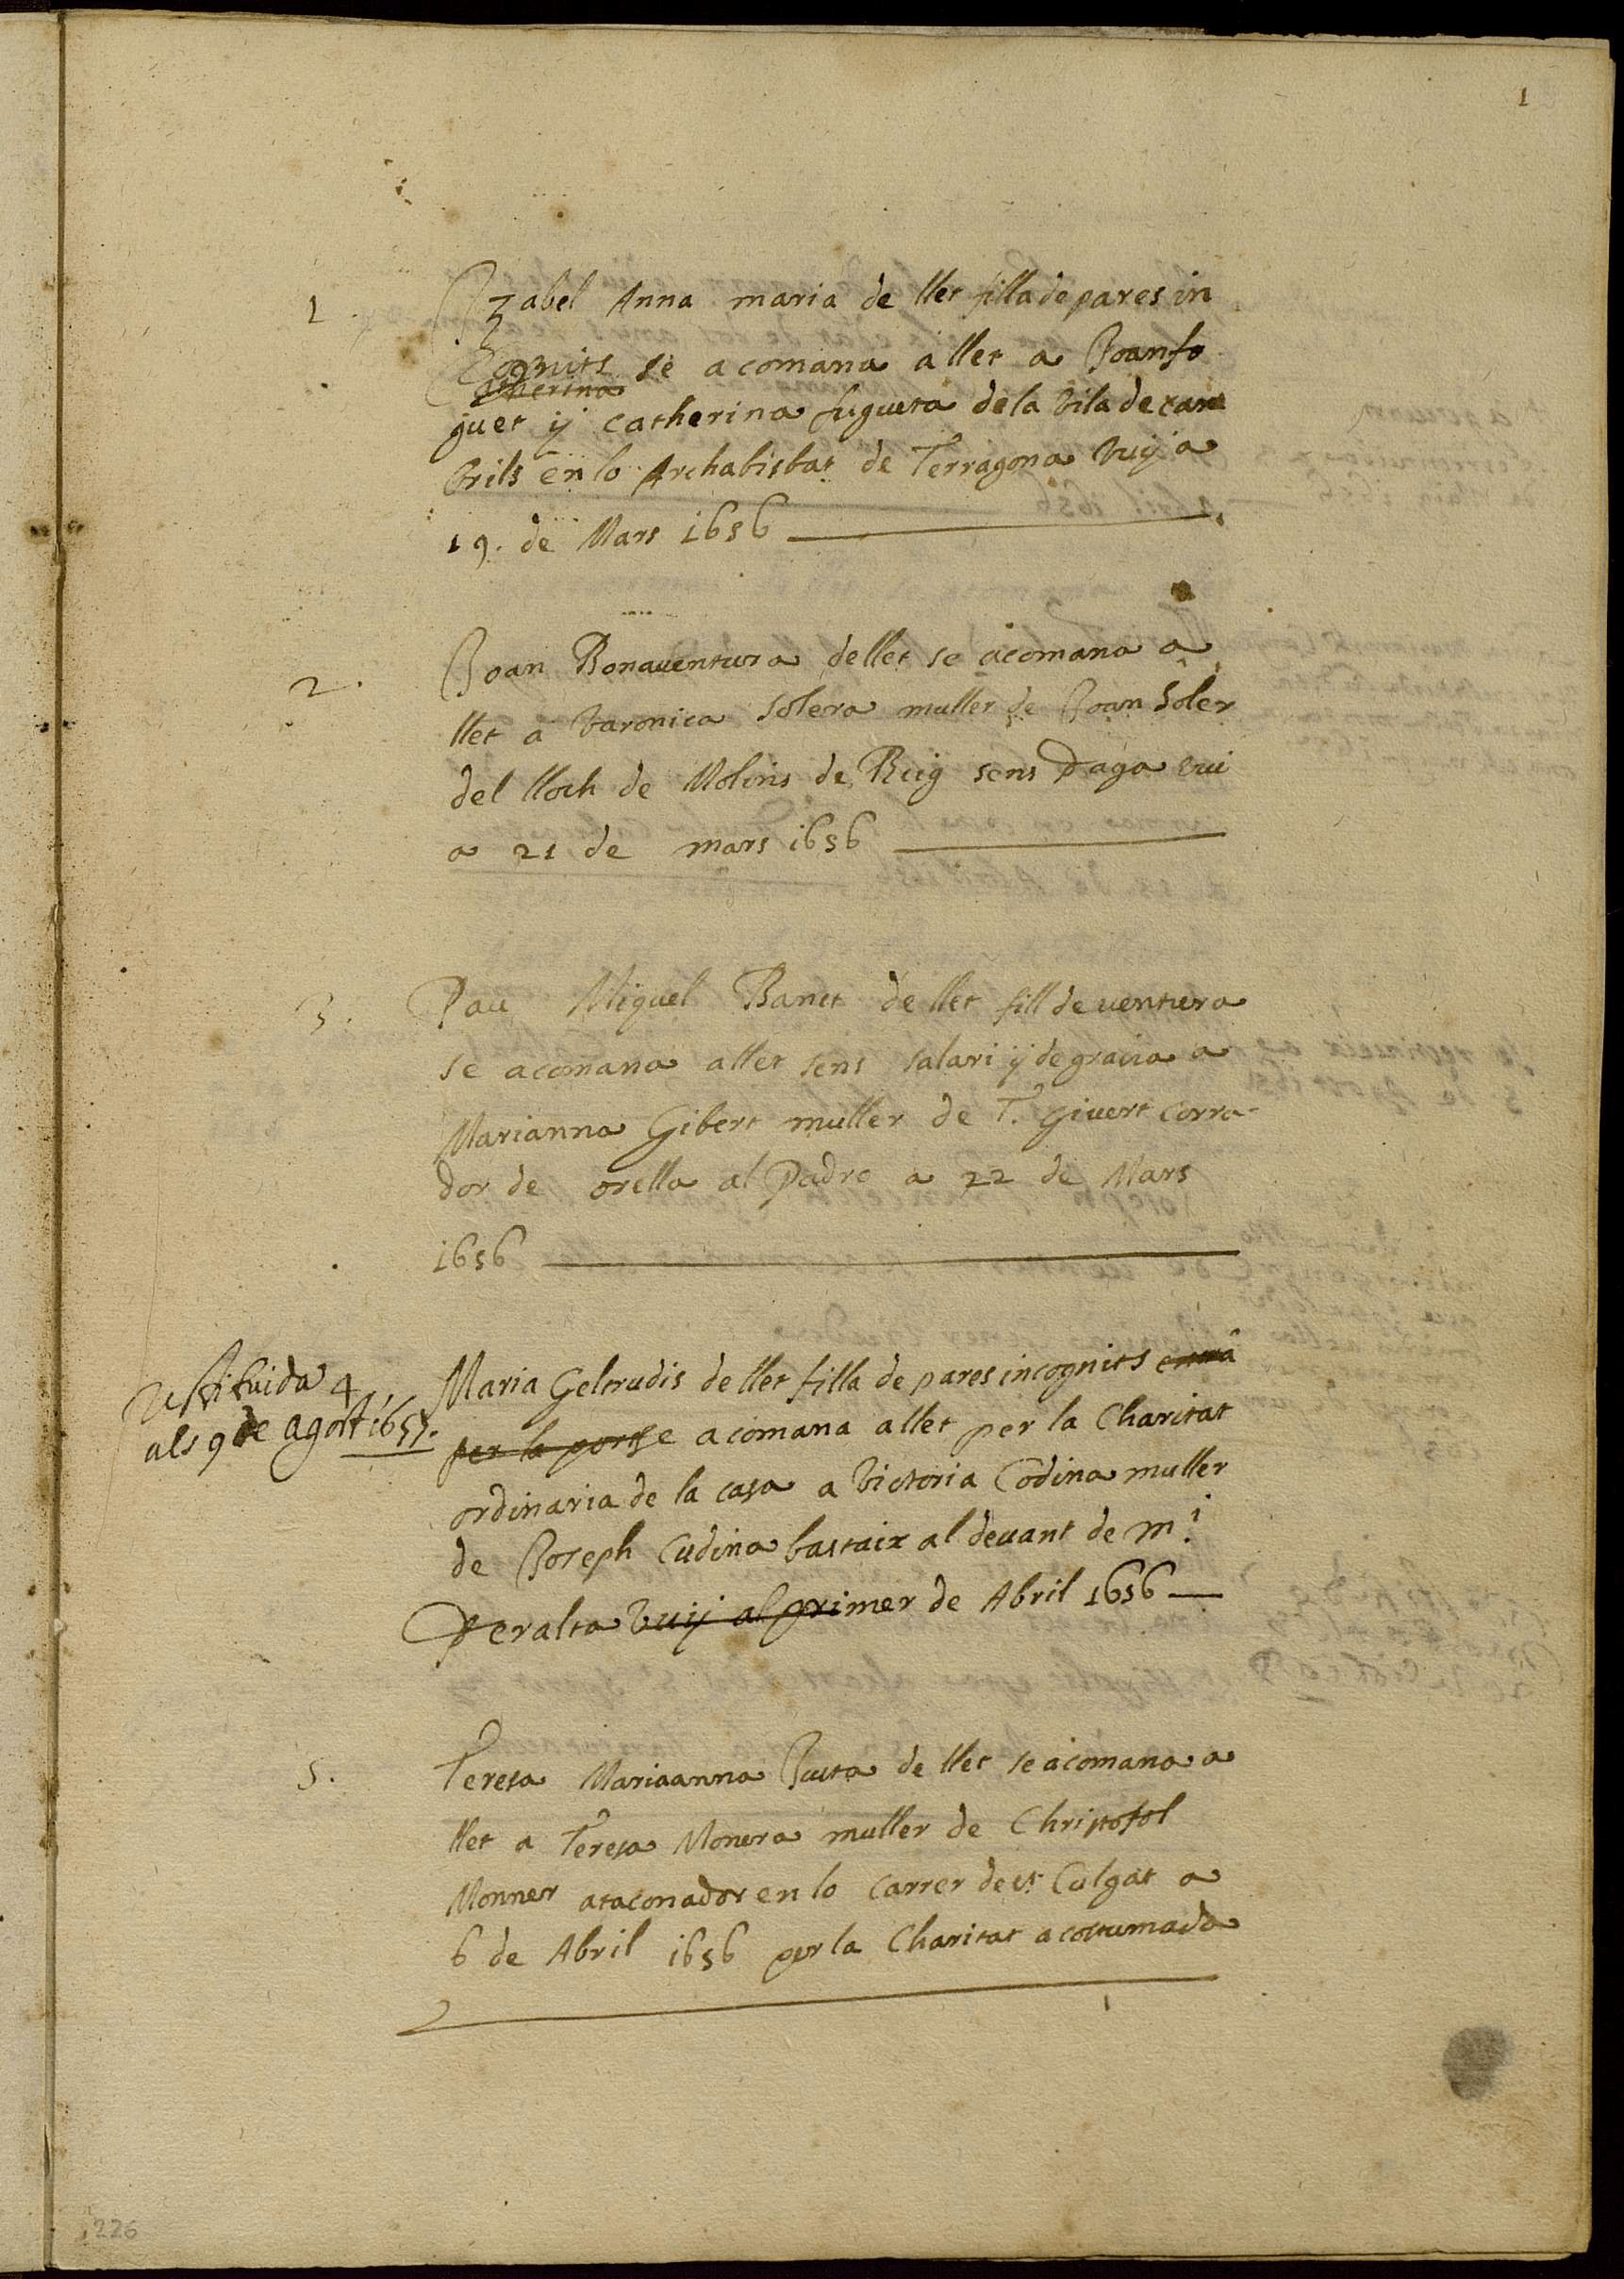 1
1. Izabel Anna maria de llet filla de pares in
cognits se acomana a llet a Joan fo
catherina
guet ÿ Catherina fugueta de la vila de cam
brils en lo Archabisbat de Terragona vuÿ a
19. de Mars 1656
2. Joan Bonaventura de llet se acomana a
llet a Varonica solera muller de Joan Soler
del lloch de Molins de Reig sens Daga vui
a 21 de mars 1656
3. Pau Miquel Banet de llet fill de ventura
se acomana a llet sens salari ÿ de gracia a
Marianna Gibert muller de T. Givert corra-
dor de orella al Padro a 22 de Mars
1656
restituida 4
als 9 de agost 1657.
Maria Geltrudis de llet filla de pares incognits entrâ
per la port se acomana a llet per la Charitat
ordinaria de la casa a Victoria Codina muller
de Joseph Cudina bastaix al devant de m.i
Peralta vuÿ al primer de Abril 1656
5. Teresa Mariaanna Justa de llet se acomana a
llet a Teresa Monera muller de Christofol
Monner ataconador en lo carrer de st Culgat a
6 de Abril 1656 per la Charitat acostumada
226